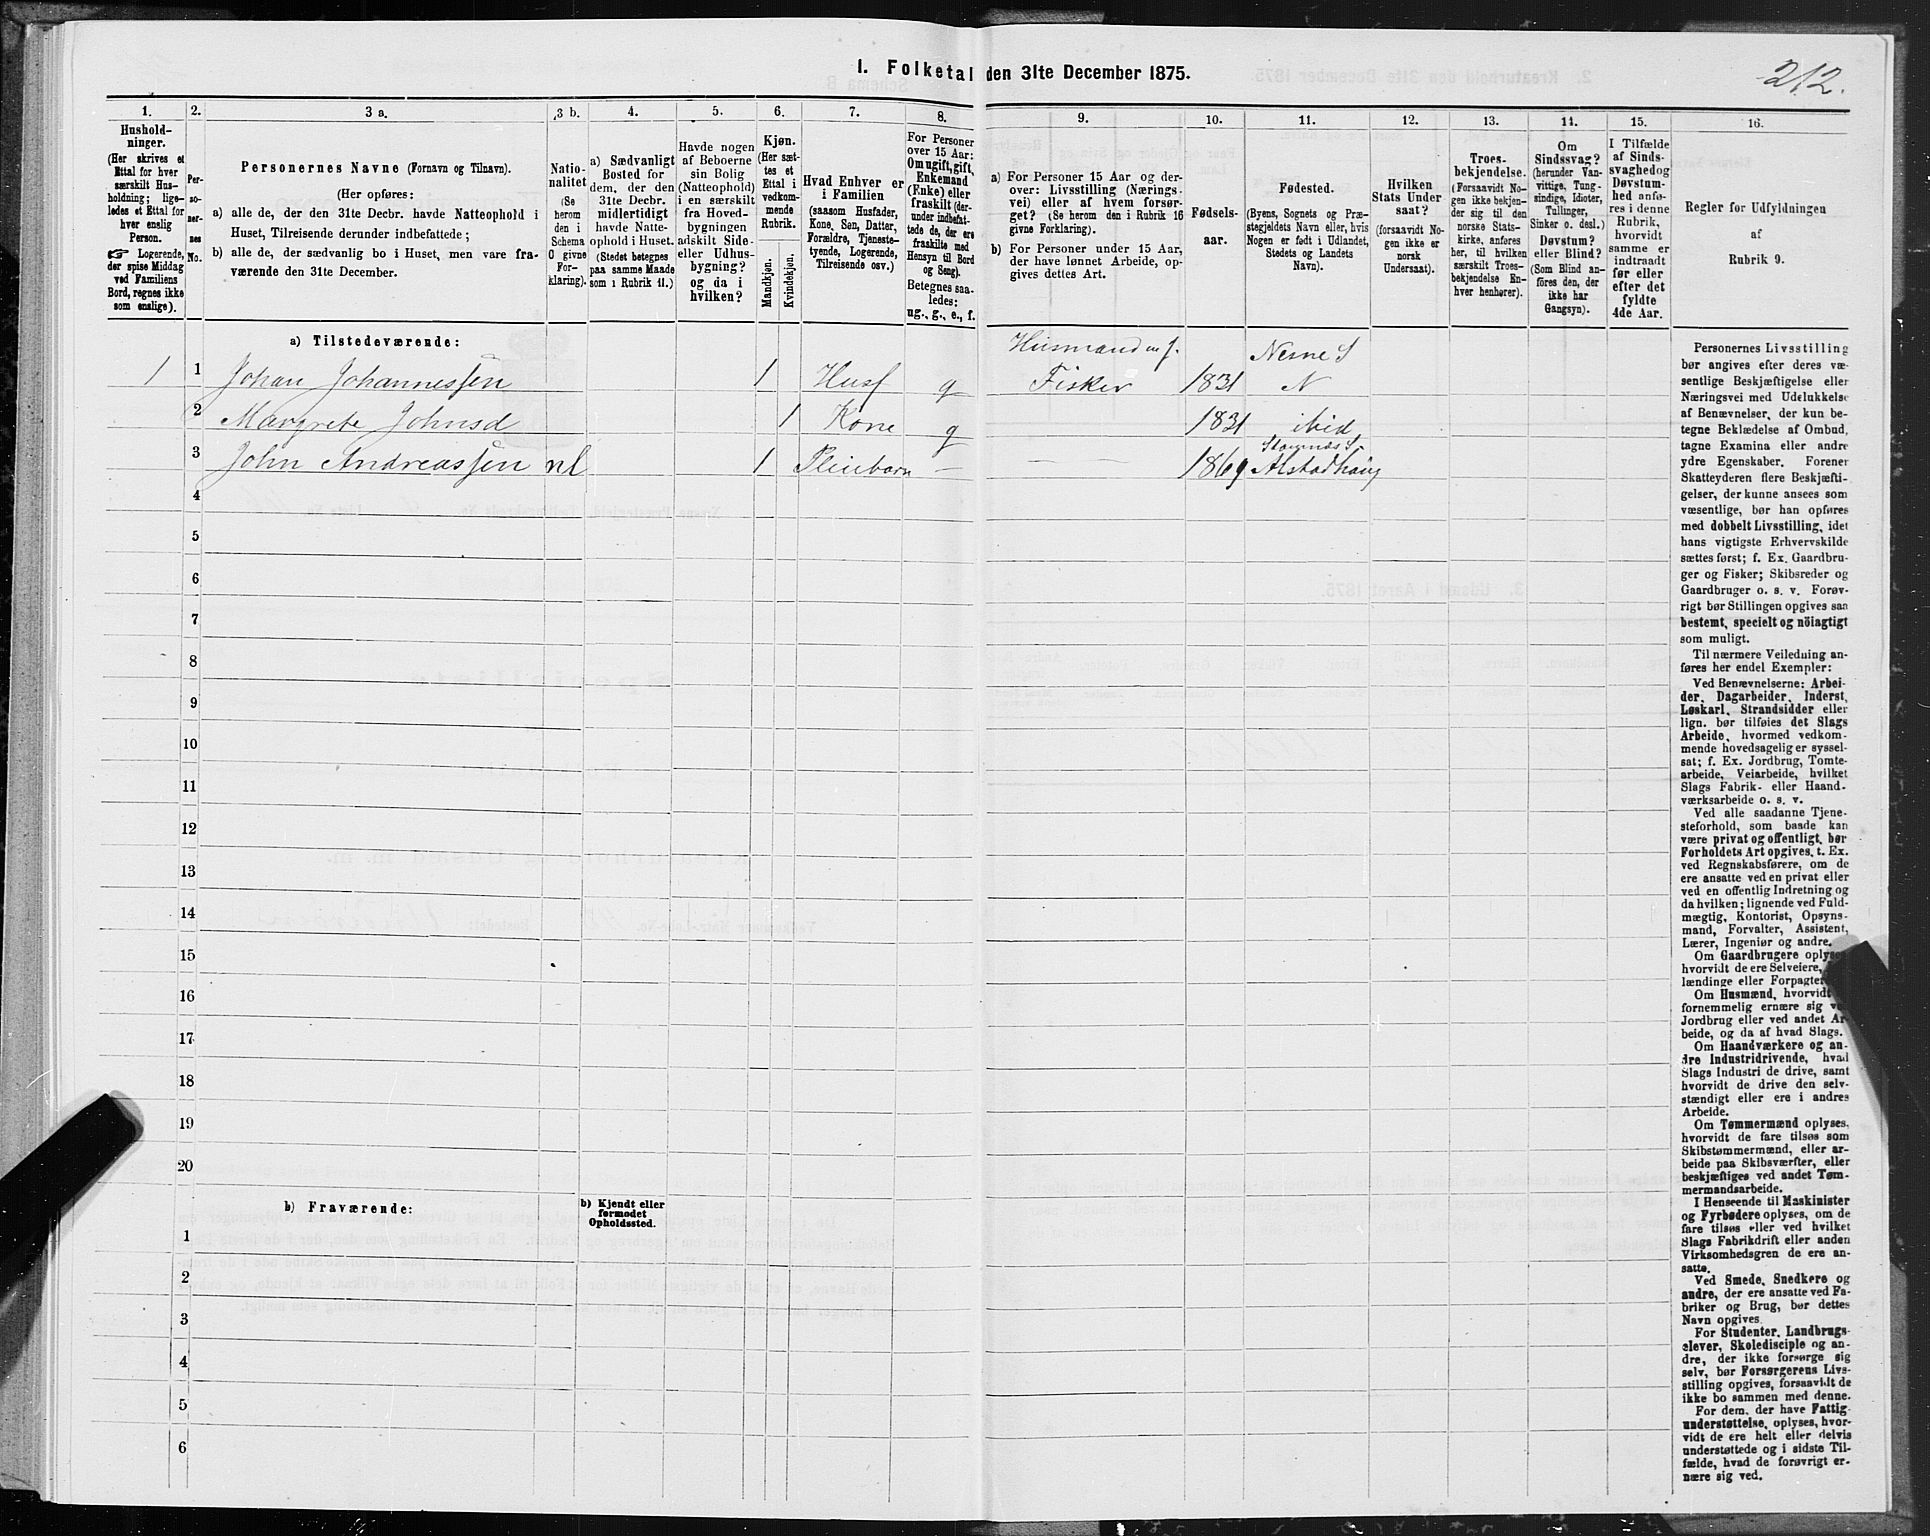 I. Folketal den 31te December 1875.
212.
1.
Hushold-
ninger.
(Her skrives et
Ettal for hver
særskilt Hus-
holdning; lige-
ledes et Ettal for
hver enslig
Person.
☞ Logerende,
der spise Middag
ved Familiens
Bord, regnes ikke
som enslige).
2.
Per-
so-
ner-
nes
No.
3 a.
Personernes Navne (Fornavn og Tilnavn).
(Her opføres:
a) alle de, der den 31te Decbr. havde Natteophold i
Huset, Tilreisende derunder indbefattede;
b) alle de, der sædvanlig bo i Huset, men vare fra-
værende den 31te December.
3 b.
Natio-
nalitet
(Se
herom
den i
Schema
C givne
For-
klaring).
4.
a) Sædvanligt
Bosted for
dem, der den
31te Decbr.
midlertidigt
havde Natte-
ophold i Huset.
(Stedet betegnes
paa samme Maade
som i Rubrik 11.)
5.
Havde nogen
af Beboerne
sin Bolig
(Natteophold)
i en særskilt
fra Hoved-
bygningen
adskilt Side-
eller Udhus-
bygning?
og da i
hvilken?
6.
Kjøn.
(Her sæt-
tes et
Ettal i
vedkom-
mende
Rubrik.
Mandkjøn.
Kvindekjøn.
7.
Hvad Enhver er
i Familien
(saasom Husfader,
Kone, Søn, Datter,
Forældre, Tjeneste-
tyende, Logerende,
Tilreisende osv.)
8.
For Personer
over 15 Aar:
Om ugift, gift,
Enkemand
(Enke) eller
fraskilt (der-
under indbefat-
tede de, der ere
fraskilte med
Hensyn til Bord
og Seng).
Betegnes saa-
ledes:
ug., g., e., f.
9.
a) For Personer 15 Aar og der-
over: Livsstilling (Nærings-
vei) eller af hvem forsør-
get? (Se herom den i Rubrik 16
givne Forklaring).
b) For Personer under 15 Aar,
der have lønnet Arbeide, op-
gives dettes Art.
10.
Fødsels-
aar.
11.
Fødested.
(Byens, Sognets og Præ-
stegjeldets Navn eller, hvis
Nogen er født i Udlandet,
Stedets og Landets
Navn).
12.
Hvilken
Stats Under
saat?
(forsaavidt No-
gen ikke er
norsk
Undersaat).
13.
Troes-
bekjendelse.
(Forsaavidt No-
gen ikke bekjen-
der sig til den
norske Stats-
kirke, anføres
her, til hvilken
særskilt Troes-
bekjendelse En-
hver henhører).
14.
Om
Sindssvag?
(herunder Van-
vittige, Tung-
sindige, Idioter,
Tullinger,
Sinker o. desl.)
Døvstum?
eller Blind?
(Som Blind an-
føres den, der
ikke har
Gangsyn).
15.
I Tilfælde
af Sinds-
svaghed og
Døvstum-
hed anfø-
res i denne
Rubrik,
hvorvidt
samme er
indtraadt
før eller
efter det
fyldte
4de Aar.
16.
Regler for Udfyldningen
af
Rubrik 9.
a) Tilstedeværende:
Husmand m J. Nesne S
1 1 Johan Johannessen 1 Husf g Fisker 1831 N
2 Margrete Johnsd 1 Kone g 1831 ibid
Stamnæs S.
3 John Andreassen nl 1 Pleiebarn — — 1869 Alstadhaug
4
5
6
7
8
9
10
11
12
13
14
15
16
17
18
19
20
b) Fraværende:
b) Kjendt eller
formodet
Opholdssted.
1
2
3
4
5
6
Personernes Livsstilling
bør angives efter deres væ-
sentlige Beskjæftigelse eller
Næringsvei med Udelukkelse
af Benævnelser, der kun be-
tegne Beklædelse af Ombud,
tagne Examina eller andre
ydre Egenskaber. Forener
Skatteyderen flere Beskjæfti-
gelser, der kunne ansees som
væsentlige, bør han opføres
med dobbelt Livsstilling, idet
hans vigtigste Erhvervskilde
sættes først; f. Ex. Gaardbru-
ger og Fisker; Skibsreder og
Gaardbruger o. s. v. Forøv-
rigt bør Stillingen opgives saa
bestemt, specielt og nöiagtigt
som muligt.
Til nærmere Veiledning an-
føres her endel Exempler:
Ved Benævnelserne: Arbei-
der, Dagarbeider, Inderst,
Løskarl, Strandsidder eller
lign. bør tilføies det Slags
Arbeide, hvormed vedkom-
mende hovedsagelig er syssel-
sat; f. Ex. Jordbrug, Tomte-
arbeide, Veiarbeide, hvilket
Slags Fabrik- eller Haand-
værksarbeide o. s. v.
Ved alle saadanne Tjene-
steforhold, som baade kan
være privat og offentligt, bør
Forholdets Art opgives, t. Ex.
ved Regnskabsførere, om de
ere ansatte ved en privat eller
ved en offentlig Indretning og
da hvilken; lignende ved Fuld-
mægtig, Kontorist, Opsyns-
mand, Forvalter, Assistent,
Lærer, Ingeniør og andre.
Om Gaardbrugere oplyses
hvorvidt de ere Selveiere,
lændinge eller Forpagtere
Om Husmænd, hvorvidt
fornemmelig ernære sig ve
Jordbrug eller ved andet Ar
beide, og da af hvad Slags.
Om Haandværkere og an-
dre Industridrivende, hvad
Slags Industri de drive, samt
hvorvidt de drive den selv-
stændigt eller ere i andres
Arbeide.
Om Tømmermænd oplyses,
hvorvidt de fare tilsøs som
Skibstømmermænd, eller ar-
beide paa Skibsværfter, eller
beskjæftiges ved andet Tøm-
mermandsarbeide.
I Henseende til Maskinister
og Fyrbødere oplyses, om de
fare tilsøs eller ved hvilket
Slags Fabrikdrift eller anden
Virksomhedsgren de ere an-
satte.
Ved Smede, Snedkere og
andre, der ere ansatte ved Fa-
briker og Brug, bør dettes
Navn opgives.
For Studenter, Landbrugs-
elever, Skoledisciple og an-
dre, der ikke forsørge sig
selv, bør Forsørgerens Livs-
stilling opgives, forsaavidt de
ikke bo sammen med denne.
For dem, der have Fattig-
understøttelse, oplyses, hvor-
vidt de ere helt eller delvis
understøttede og i sidste Til-
fælde, hvad de forøvrigt er-
nære sig ved.